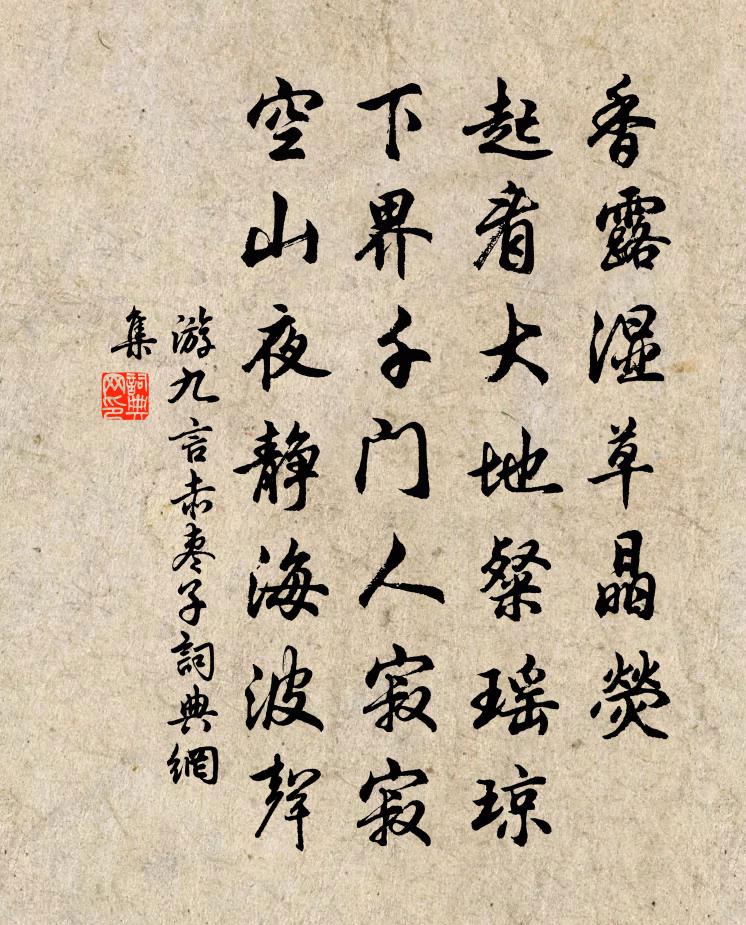 香露湿草晶熒
起看大地粲瑶琼
下界千门人寂寂
空山夜静海波聲
游九言赤枣子詞典網
集
詞典网印